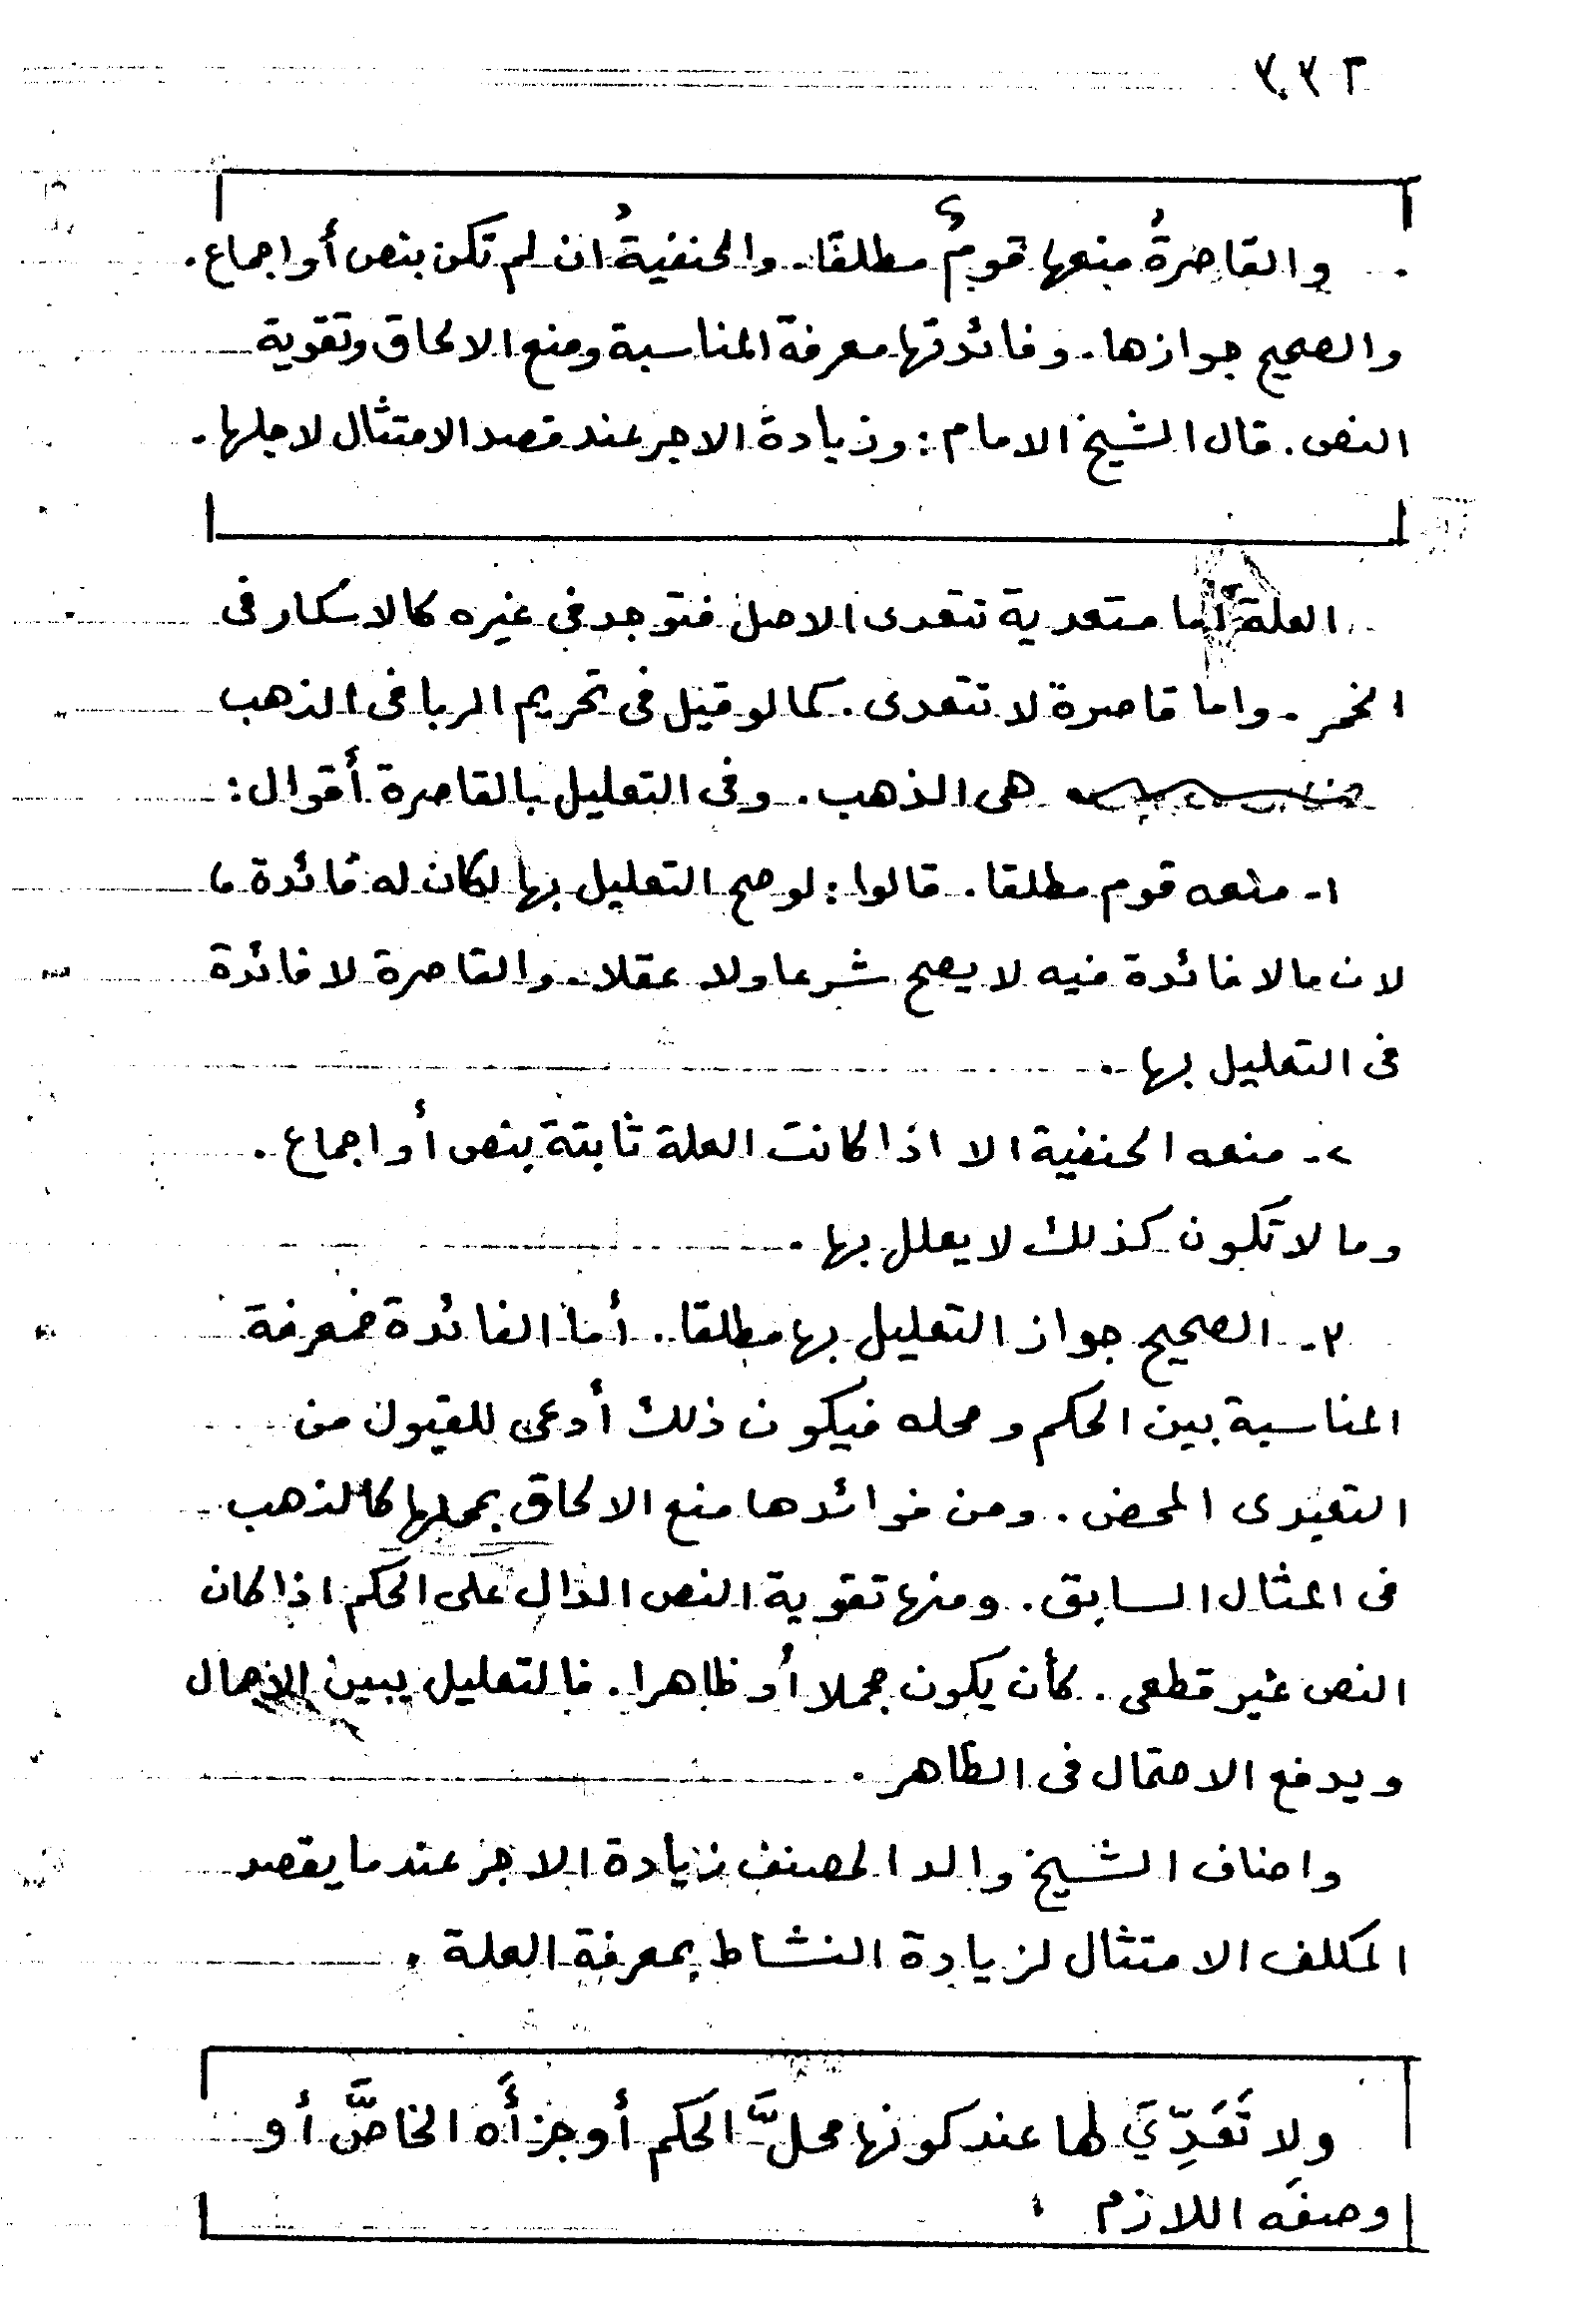 والقاصرةُ منعها قومٌ مطلقًا. والحنفيةُ ان لم تكن بنص أو اجماع.
والصحيح جوازها. وفائدتها معرفة المناسبة ومنع الالحاق وتقوية
النص. قال الشيخ الامام: وزيادة الاجر عند قصد الامتثال لاجلها.
العلة أما متعدية تتعدى الاصل فتوجد فى غيره كالاسكار فى
الخمر. واما قاصرة لا تتعدى. كما لو قيل فى تحريم الربا فى الذهب
هى الذهب. وفى التعليل بالقاصرة أقوال:
١- منعه قوم مطلقا. قالوا: لو صح التعليل بها لكان له فائدة،
لان ما لا فائدة فيه لا يصح شرعا ولا عقلا. والقاصرة لا فائدة
فى التعليل بها.
٢- منعه الحنفية الا اذا كانت العلة ثابتة بنص أو اجماع.
وما لا تكون كذلك لا يعلل بها.
٣- الصحيح جواز التعليل بها مطلقا. أما الفائدة فمعرفة
المناسبة بين الحكم ومحله فيكون ذلك أدعى للقبول من
التعبدى المحض. ومن فوائدها منع الالحاق بمحلها كالذهب
فى المثال السابق. ومنها تقوية النص الدال على الحكم اذا كان
النص غير قطعى. كأن يكون مجملا أو ظاهرا. فالتعليل يبين الاجمال
ويدفع الاحتمال فى الظاهر.
واضاف الشيخ والد المصنف زيادة الاجر عندما يقصد
المكلف الامتثال لزيادة النشاط بمعرفة العلة.
ولا تَعَدِّيَ لها عند كونها محلَّ الحكم أو جزأَه الخاصَّ أو
وصفَه اللازم